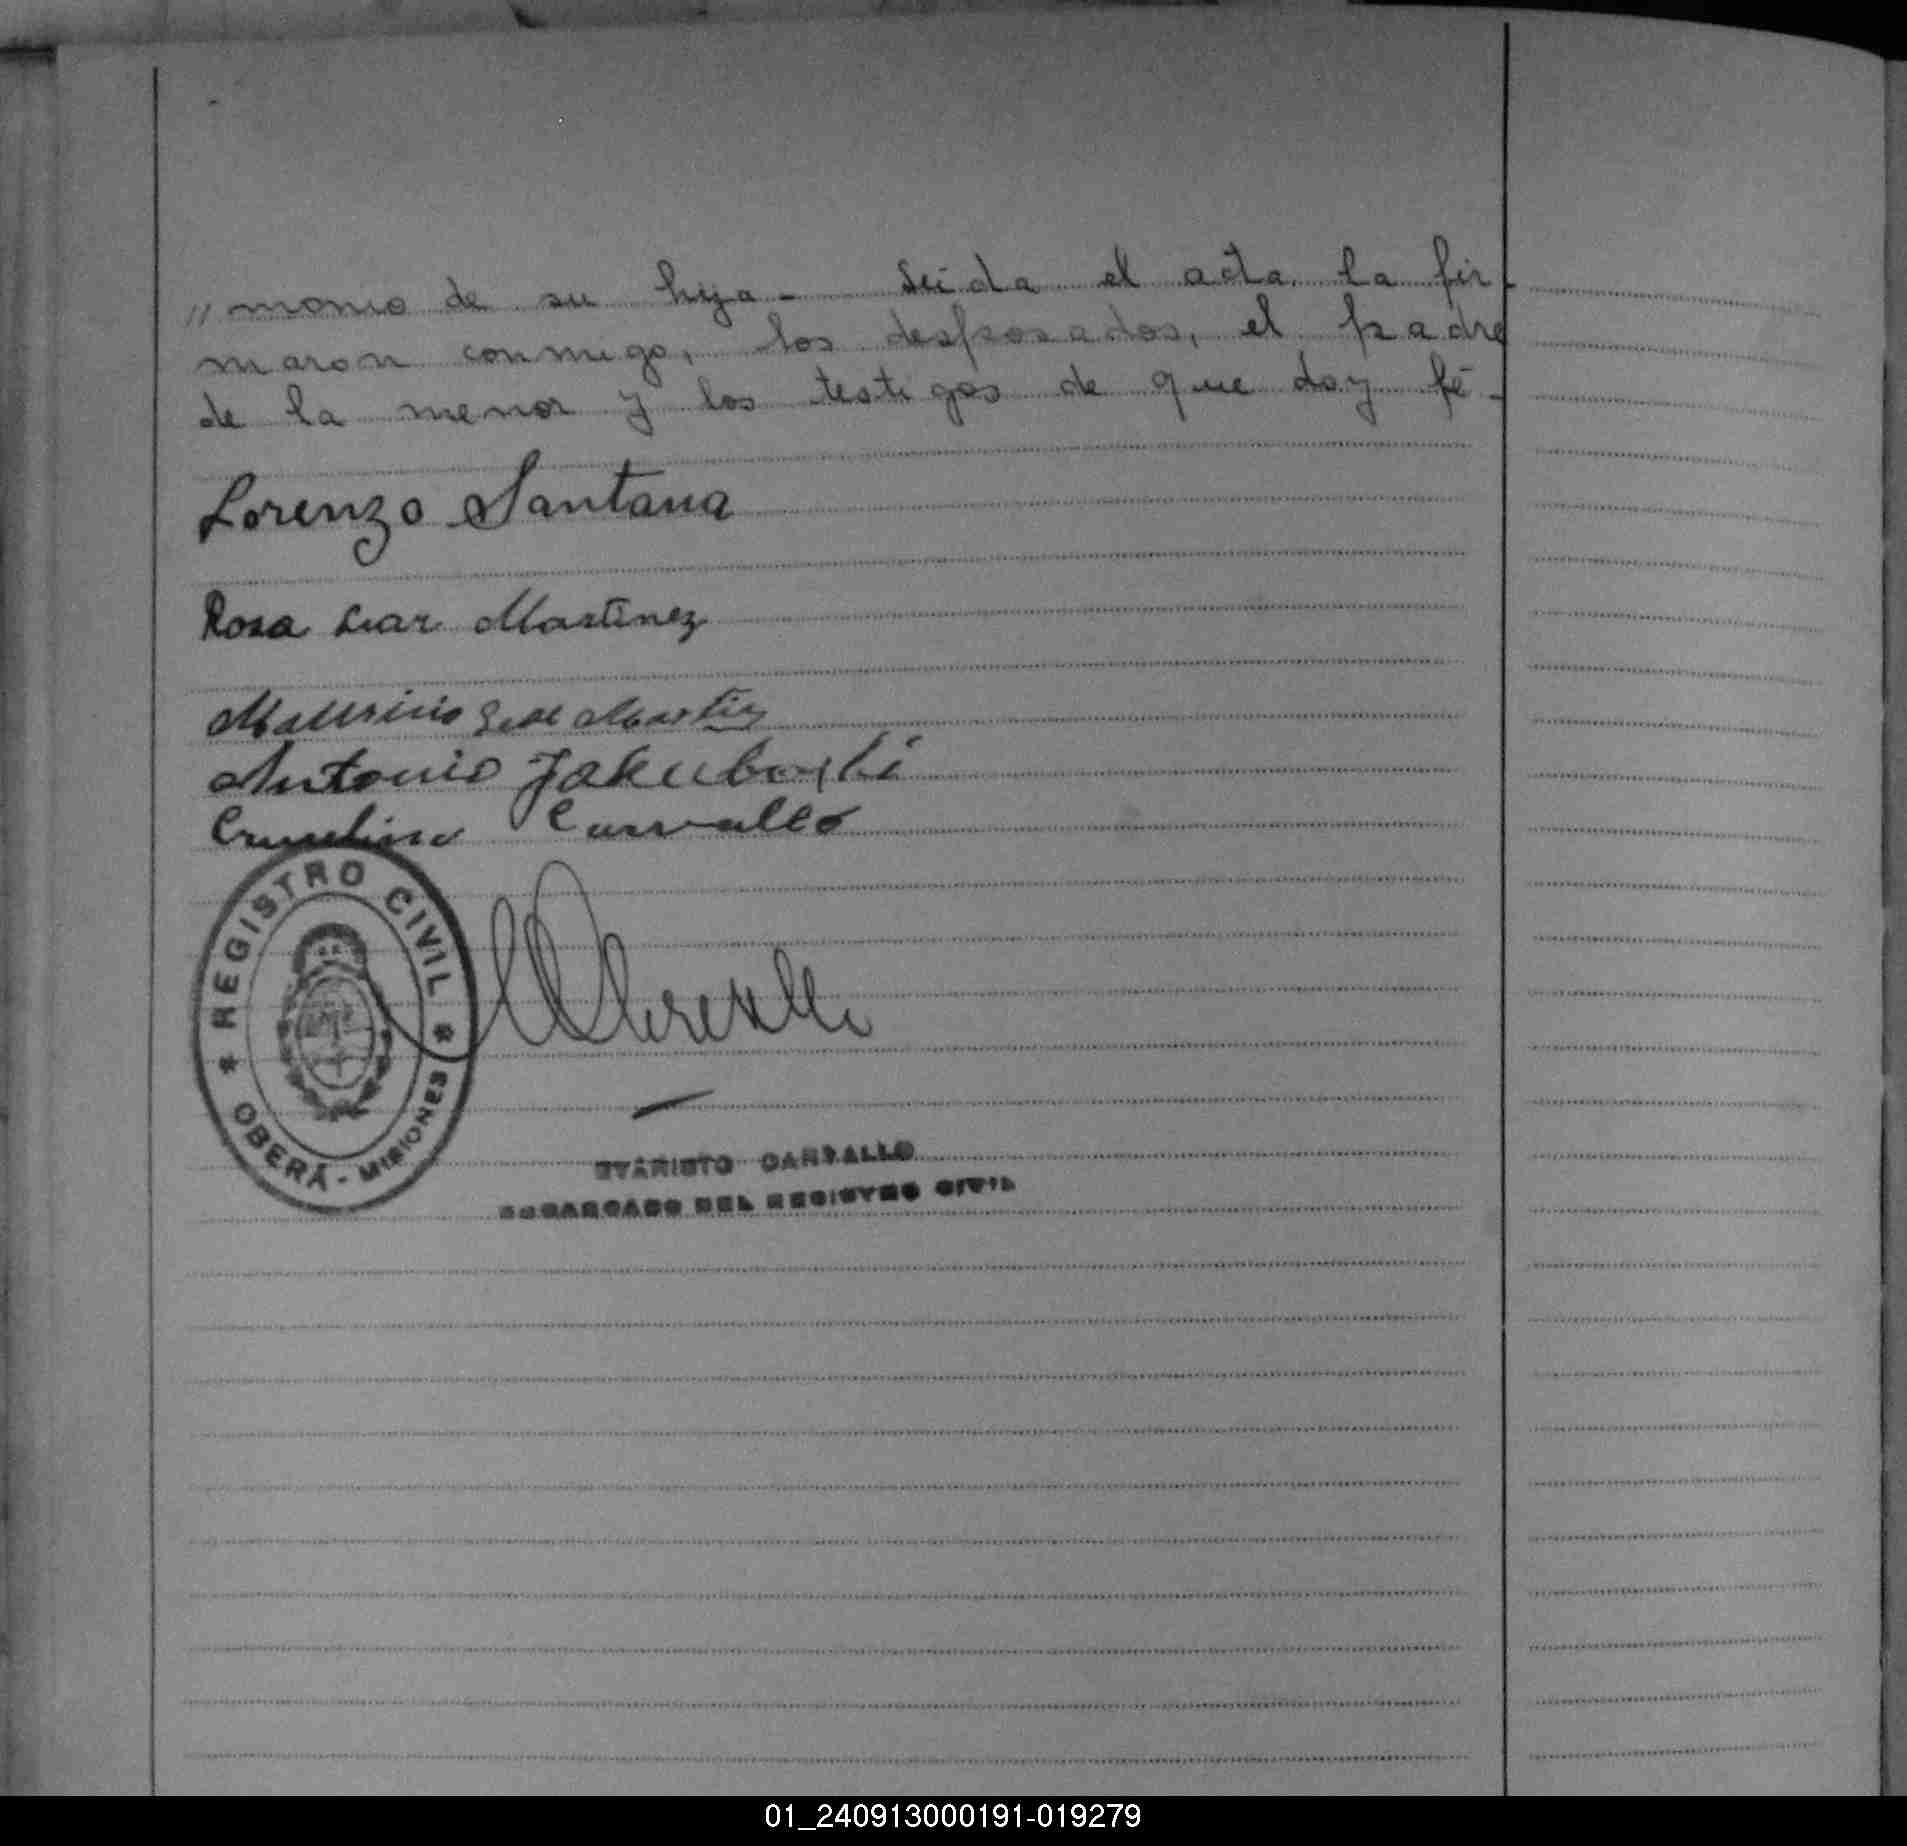 " monio de su hija - Leida el acta la fir-
maron conmigo, los desposados, el padre
de la menor y los testigos de que doy fé -
Lorenzo Santana
Rosa Martinez
Antonio Jakuboski
Carvallo
REGISTRO CIVIL
OBERÁ - MISIONES
EVARISTO CARVALLO
ENCARGADO DEL REGISTRO CIVIL
01_240913000191-019279